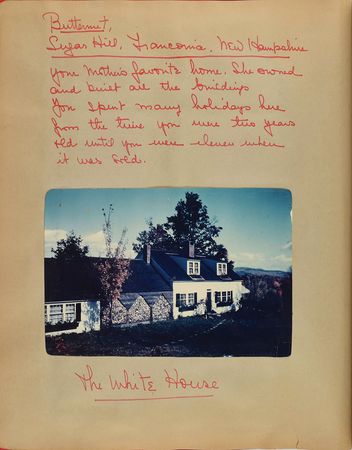 Butternut,
Sugar Hill, Franconia, New Hampshire
your mother's favorite home. She owned
and built all the buildings
You spent many holidays here
from the time you were two years
old until you were eleven when
it was sold.
The White House